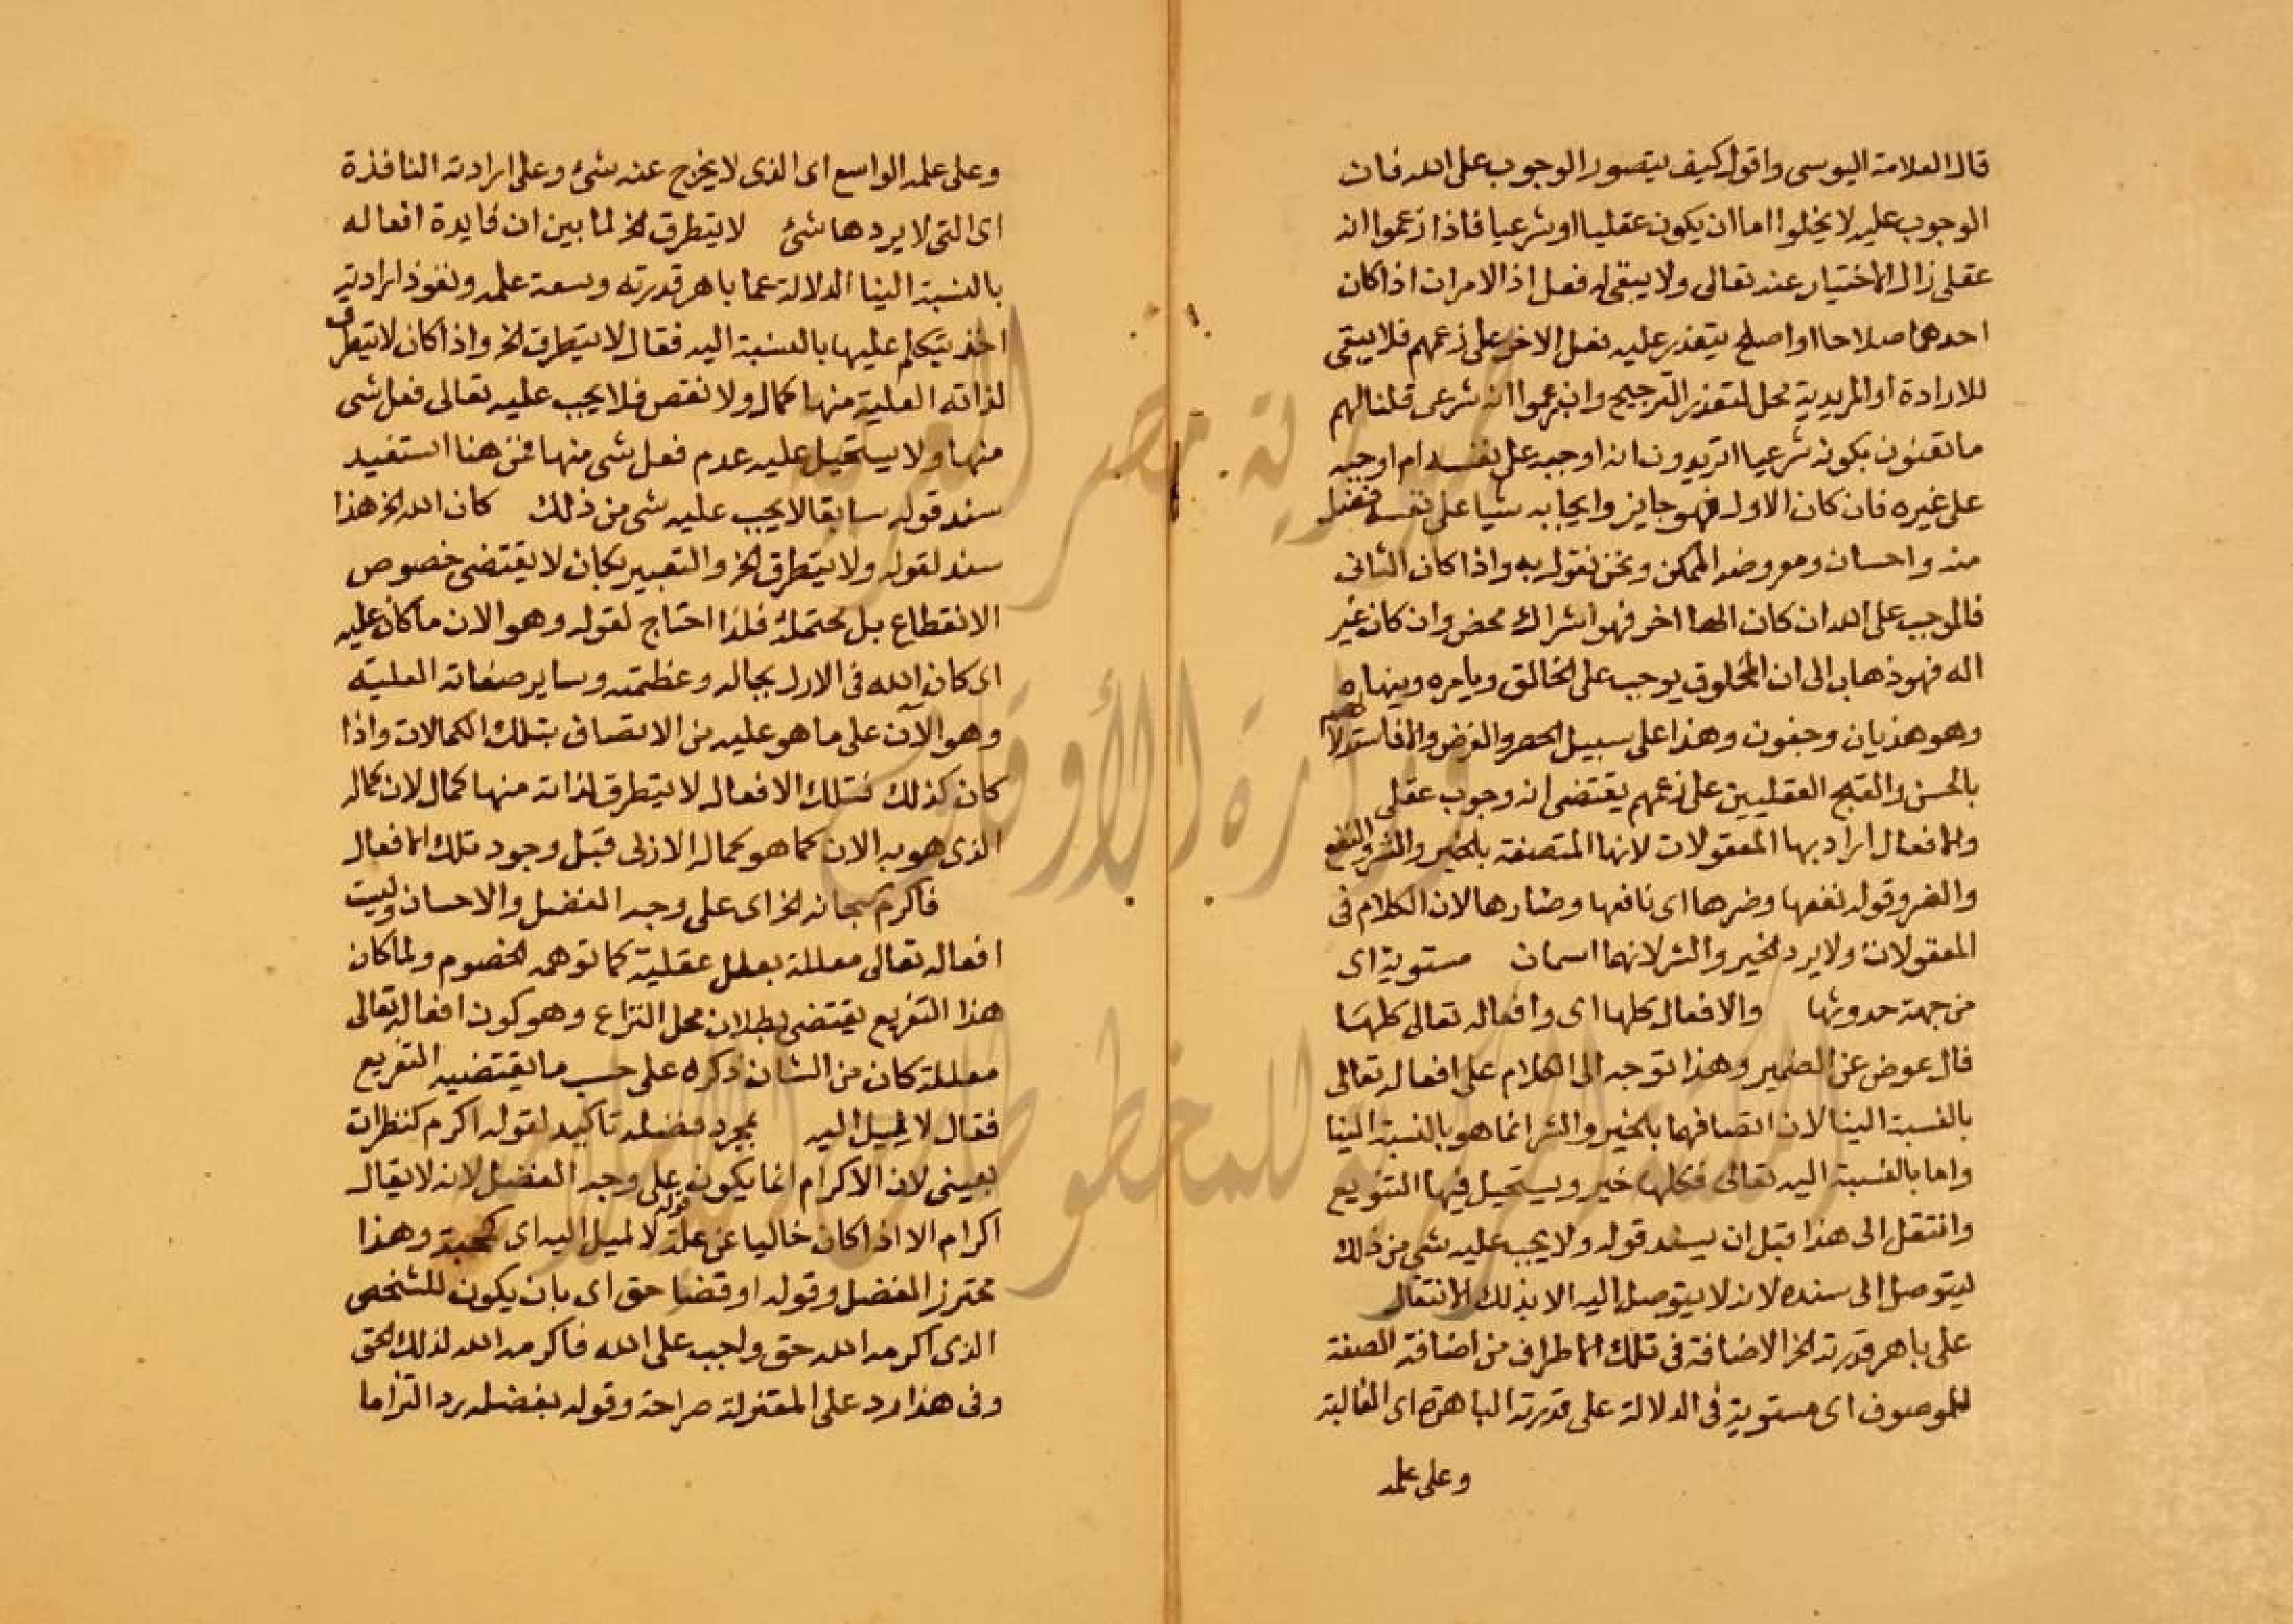 قال العلامة اليوسى واقول كيف يتصور الوجوب على الله فان
الوجوب عليه لا يخلوا اما ان يكون عقليا او شرعيا فاذا زعموا انه
عقلى زال الاختيار عنه تعالى ولا يبقى له فعل اذ الامران اذا كان
احدهما صلاحا او اصلح يتعذر عليه فعل الاخر على زعمهم فلا يبقى
للارادة او المريدية محل لتعذر الترجيح وان زعموا انه شرعى قلنا لهم
ما تعنون بكونه شرعيا اتريدون انه اوجبه على نفسه ام اوجبه
على غيره فان كان الاول فهو جايز وايجابه شيا على نفسه فضل
منه واحسان ومعروضه الممكن ونحن نقول به واذا كان الثانى
فالموجب على الله ان كان الها اخر فهو اشراك محض وان كان غير
اله فهو ذهاب الى ان المخلوق يوجب على الخالق ويامره وينهاه
وهو هذيان وجنون وهذا على سبيل الحصر والفرض والا فاستدلالهم
بالحسن والقبح العقليين على زعمهم يقتضى انه وجوب عقلى
والافعال اراد بها المعقولات لانها المتصفة بالخير والشر والنفع
والضر وقوله نفعها وضرها اى نافعها وضارها لان الكلام فى
المعقولات ولا يرد الخير والشر لانهما اسمان مستوية اى
من جهة حدوثها والافعال كلها اى وافعاله تعالى كلها
فال عوض عن الضمير وهذا توجه الى الكلام على افعاله تعالى
بالنسبة الينا لان اتصافهما بالخير والشر انما هو بالنسبة الينا
واما بالنسبة اليه تعالى فكلها خير ويستحيل فيها التنويع
وانتقل الى هذا قبل ان يسند قوله ولا يجب عليه شى من ذلك
ليتوصل الى سنده لانه لا يتوصل اليه الا بذلك الانتقال
على باهر قدرته الخ الاضافة فى تلك الاطراف من اضافة الصفة
للموصوف اى مستوية فى الدلالة على قدرته الباهرة اى الغالبة
وعلى علمه
وعلى علمه الواسع اى الذى لا يخرج عنه شئ وعلى ارادته النافذة
اى التى لا يردها شئ لا يتطرق الخ لما بين ان فايدة افعاله
بالنسبة الينا الدلالة عما باهر قدرته وسعة علمه ونفوذ ارادته
اخذ يتكلم عليها بالنسبة اليه فقال لا يتطرق الخ واذا كان لا يتطرق
لذاته العلية منها كمال ولا نقص فلا يجب عليه تعالى فعل شى
منها ولا يستحيل عليه عدم فعل شى منها فمن هنا استفيد
سند قوله سابقا لا يجب عليه شى من ذلك كان الله الخ هذا
سند لقوله ولا يتطرق الخ والتعبير بكان لا يقتضى خصوص
الانقطاع بل محتملة فلذا احتاج لقوله وهو الان ما كان عليه
اى كان الله فى الازل بجاله وعظمته وساير صفاته العلية
وهو الآن على ما هو عليه من الاتصاف بتلك الكمالات واذا
كان كذلك فتلك الافعال لا يتطرق لذاته منها كمال لان كماله
الذى هو به الان كما هو كماله الازلى قبل وجود تلك الافعال
فاكرم سبحانه الخ اى على وجه الفضل والاحسان وليست
افعاله تعالى معللة بعلل عقلية كما توهمه الخصوم ولما كان
هذا التفريع يقتضى بطلان محل النزاع وهو كون افعاله تعالى
معللة كان من الشان ذكره على حسب ما يقتضيه التفريع
فقال لا لميل اليه بمجرد فضله تاكيد لقوله اكرم كنظرت
بعينى لان الاكرام انما يكون على وجه الفضل لانه لا يقال
اكرام الا اذا كان خاليا عن علة قوله لا لميل اليه اى كمحبة وهذا
محترز الفضل وقوله او قضا حق اى بان يكون للشخص
الذى اكرمه الله حق واجب على الله فاكرمه الله لذلك الحق
وفى هذا رد على المعتزلة صراحة وقوله بفضله رد التزاما